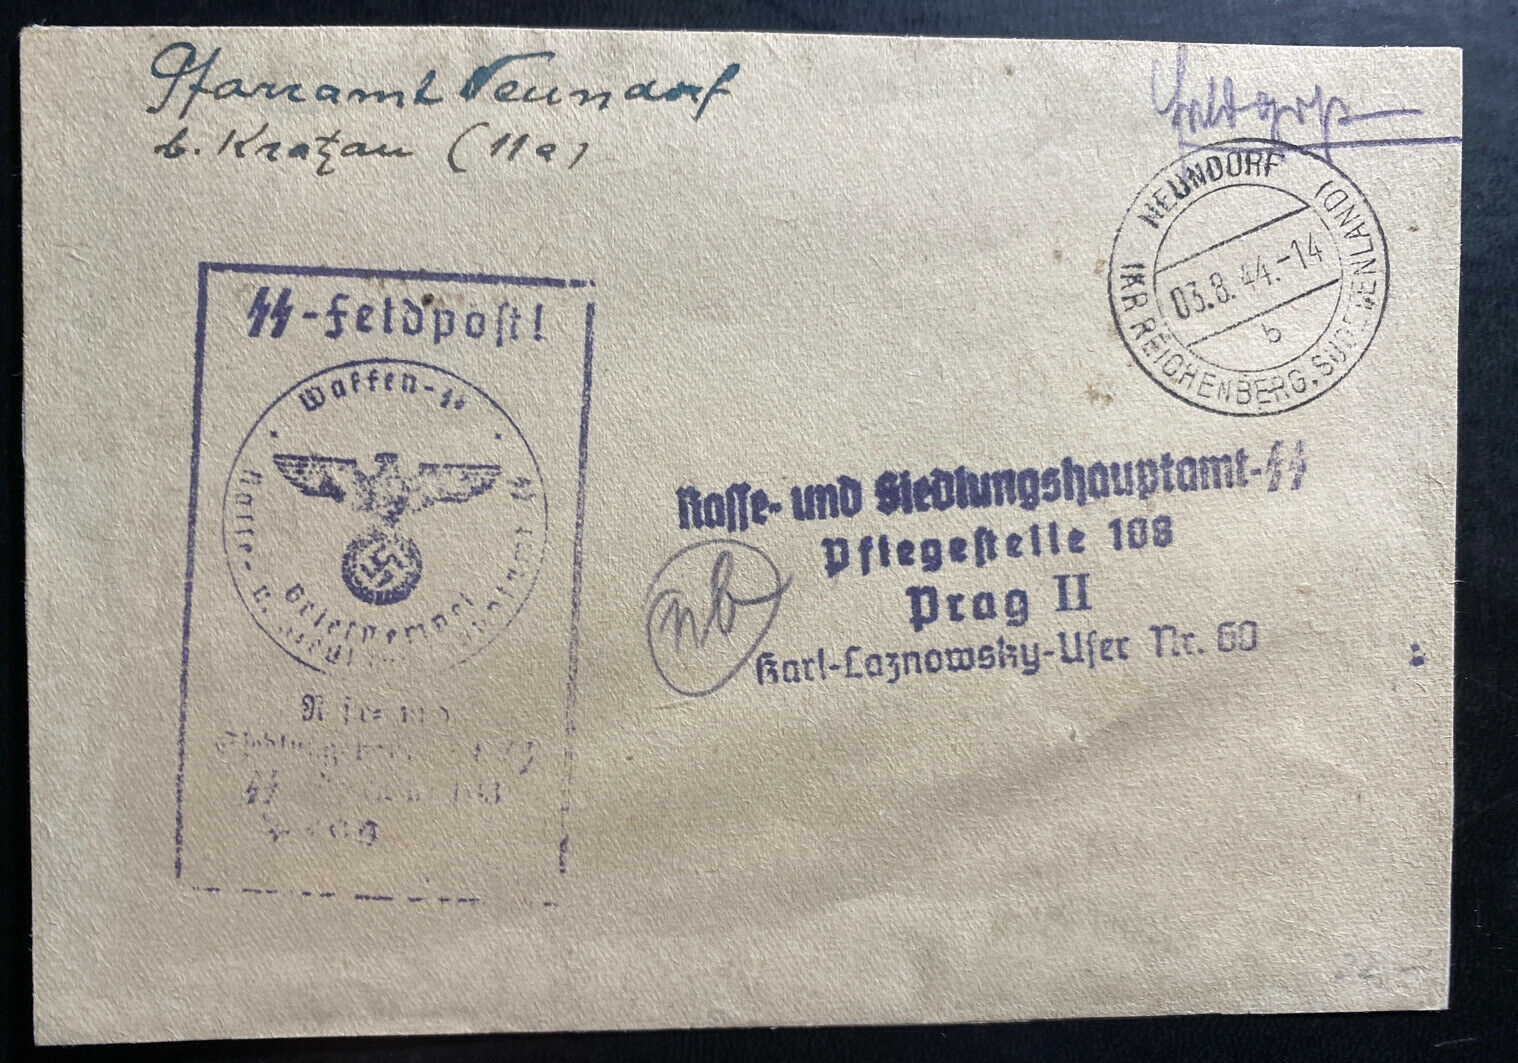 Pfarramt Neundorf
b. Kratzau (11a)
Feldpost
NEUNDORF
(KR REICHENBERG, SUDETENLAND)
03.8.44.-14
b
SS-Feldpost!
Waffen-SS
Rasse- u.
Briefstempel
SS
Rasse- und Siedlungshauptamt-SS
Pflegestelle 108
Prag II
Karl-Laznowsky-Ufer Nr. 60
nb